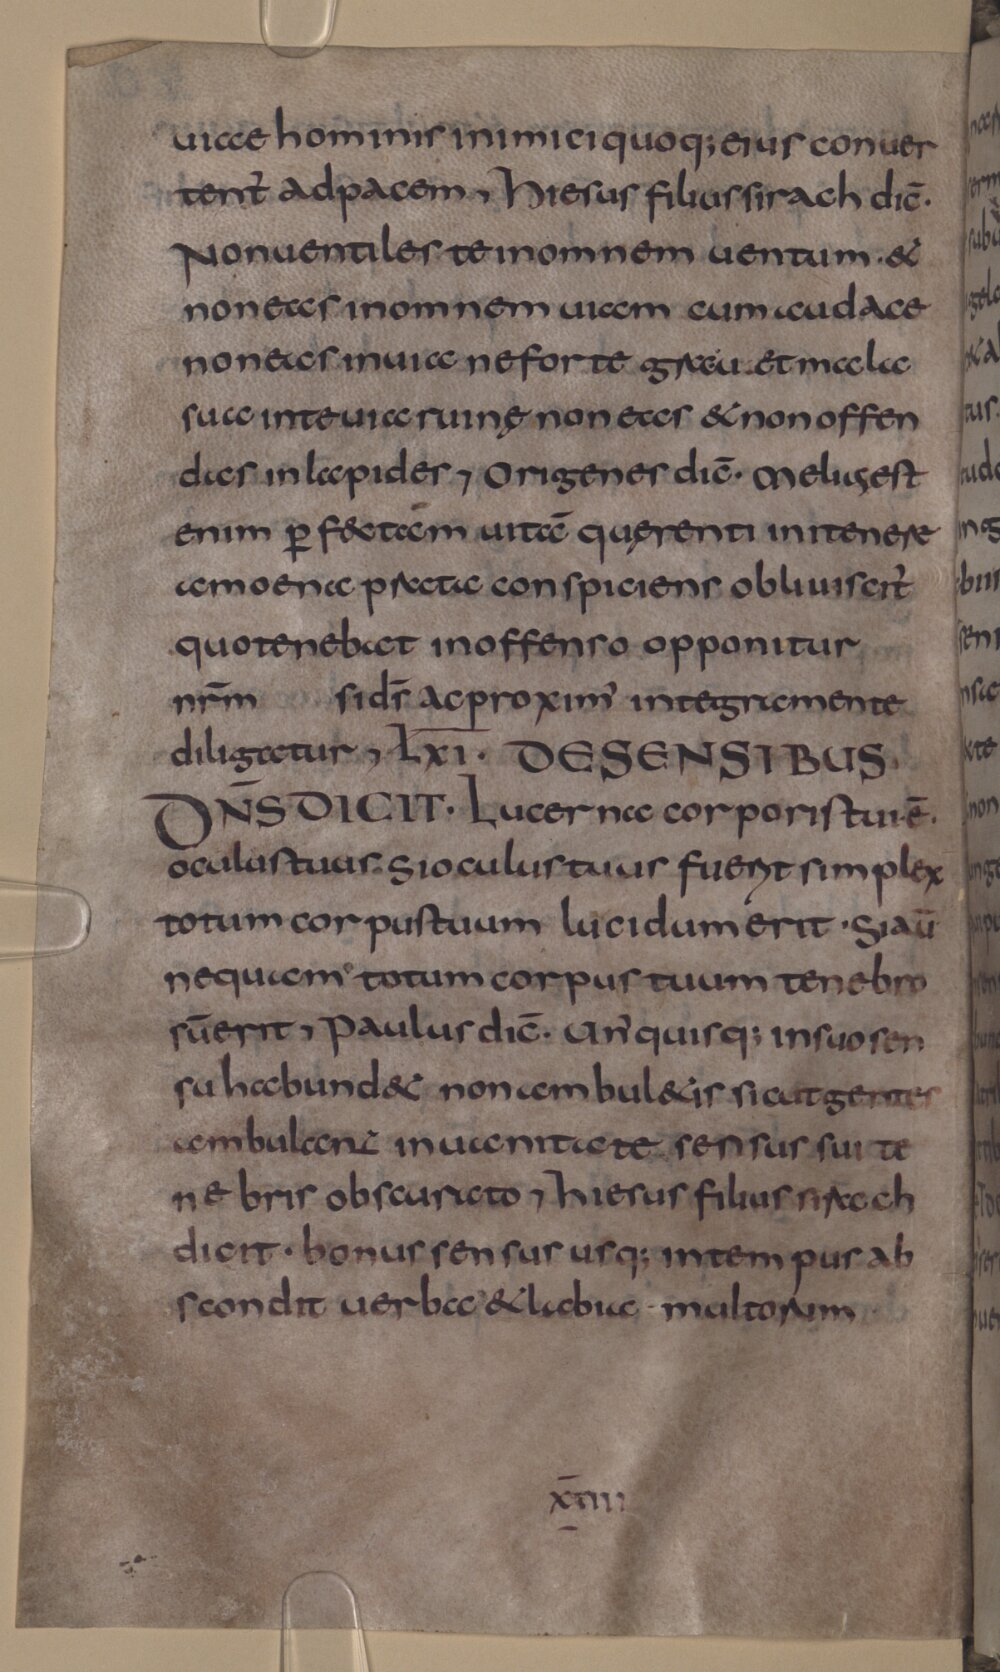 uiae hominis inimici quoq; eius conuer
tent̄ ad pacem, Hiesus filius sirach dic̄.
Non uentiles te in omnem uentum · &
non eas in omnem uiam cum audace
non eas in uia ne forte graui et mala
sua inte uia ruinę non eas & non offen
das in lapides, Origenes dic̄. Melius est
enim ꝑf&tam uitā quęrenti in itenere
amoena prata conspiciens obliuiscit̄
quo tenebat inoffenso opponitur
nr̄m sid̄s ac proxim' integra mente
diligatur, LXI. DE SENSIBUS.
DN̄S DICIT. Lucerna corporis tui ē.
oculus tuus. Si oculus tuus fuerit simplex
totum corpus tuum lucidum erit. Si aū
nequam totum corpus tuum tenebro
sū erit, Paulus dic̄. Un'quisq; in suo sen
su habund& non ambul&is sicut gentes
ambulant in uanitate sensus sui te
nebris obscurato, Hiesus filius sirach
dicit. bonus sensus usq; in tempus ab
scondit uerba & labua multorum